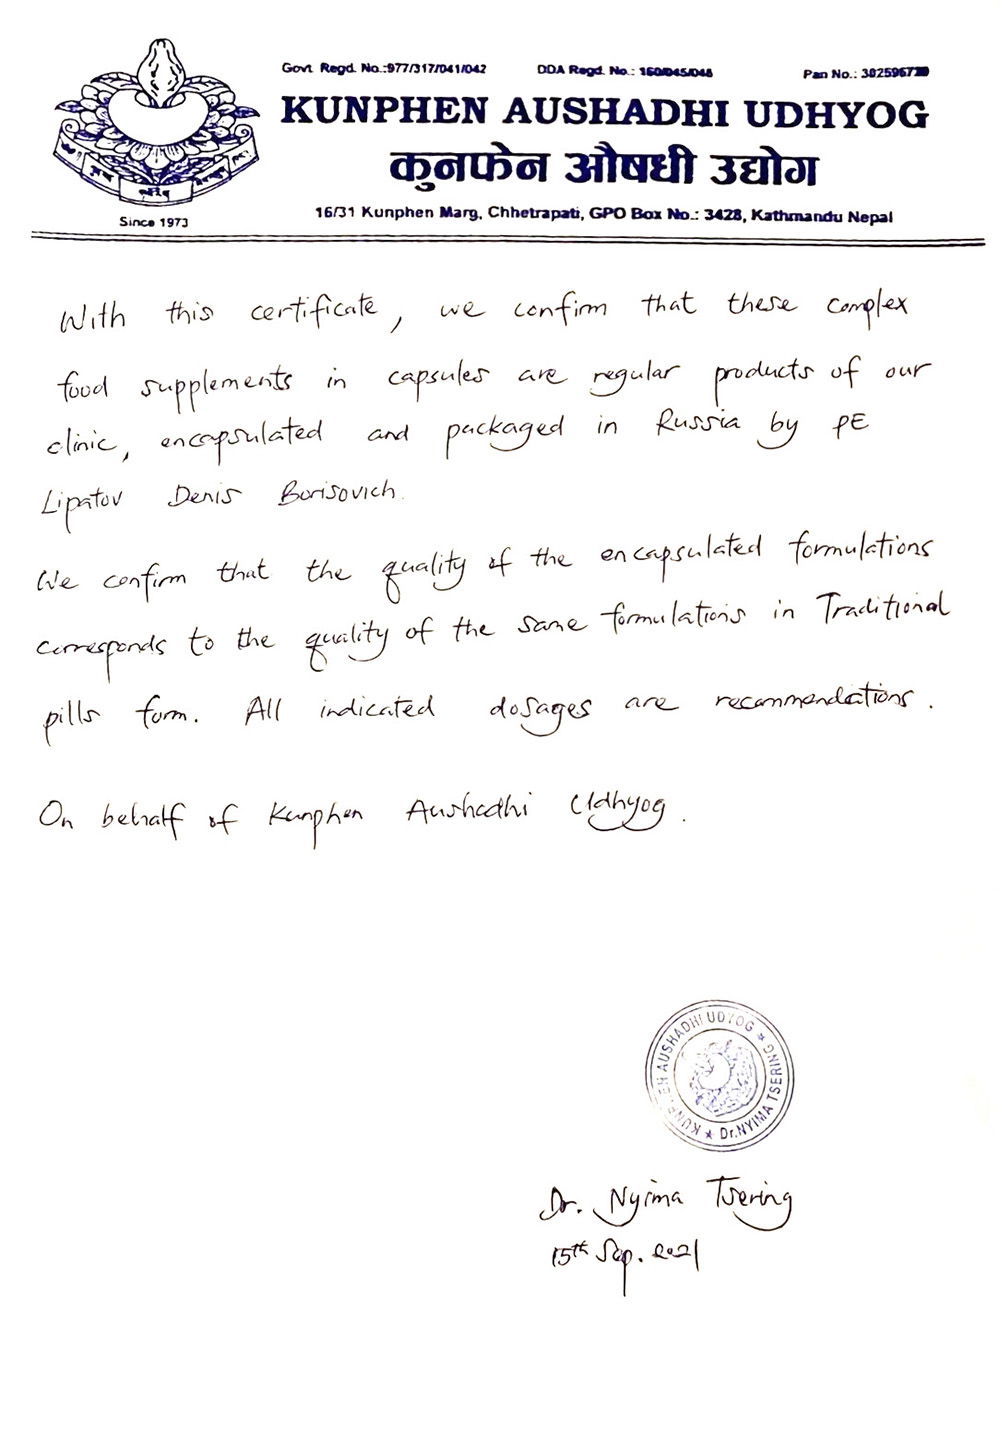 Govt Regd. No.:977/317/041/042 DDA Regd. No.: 160/045/046 Pan No.:
KUNPHEN AUSHADHI UDHYOG
कुनफेन औषधी उद्योग
16/31 Kunphen Marg, Chhetrapati, GPO Box No.: 3428, Kathmandu Nepal
Since 1973
With this certificate, we confirm that these complex
food supplements in capsules are regular products of our
clinic, encapsulated and packaged in Russia by PE
Lipatov Denis Borisovich.
We confirm that the quality of the encapsulated formulations
corresponds to the quality of the same formulations in Traditional
pills form. All indicated dosages are recommendations.
On behalf of Kunphen Aushadhi Udhyog.
KUNPHEN AUSHADHI UDYOG ★ Dr.NYIMA TSERING ★
Dr. Nyima Tsering
15th Sep. 2021